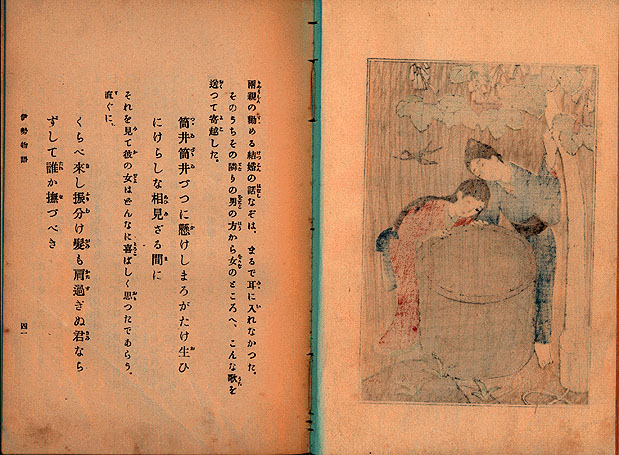 兩親の勸める結婚の話なぞは、まるで耳に入れなかつた。
そのうちその隣りの男の方から女のところへ、こんな歌を
送つて寄越した。
筒井筒井づつに懸けしまろがたけ生ひ
にけらしな相見ざる間に
それを見て彼の女はどんなに喜ばしく思つたであらう。
直ぐに、
くらべ來し振分け髮も肩過ぎぬ君なら
ずして誰か撫づべき
伊勢物語
四一